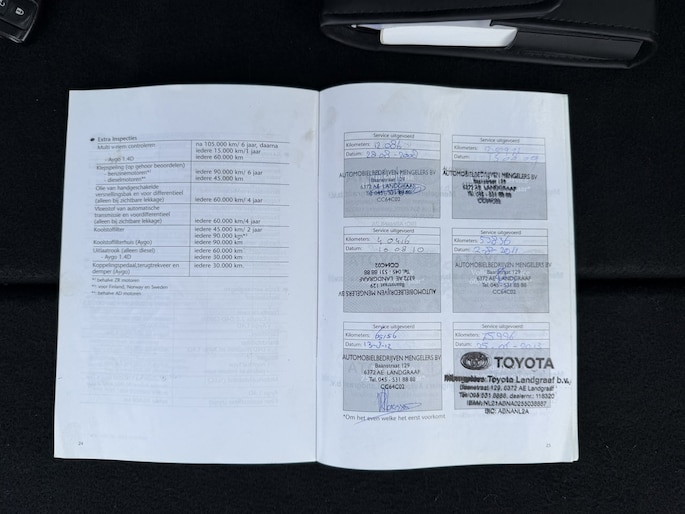 Extra Inspecties
Multi v-riem controleren na 105.000 km/ 6 jaar, daarna
iedere 15.000 km/1 jaar
- Aygo 1.4D iedere 60.000 km
Klepspeling (op gehoor beoordelen)
- benzinemotoren** iedere 90.000 km/ 6 jaar
- dieselmotoren** iedere 45.000 km
Olie van handgeschakelde
versnellingsbak en voor differentieel
(alleen bij zichtbare lekkage) iedere 60.000 km/ 4 jaar
Vloeistof van automatische
transmissie en voordifferentieel
(alleen bij zichtbare lekkage) iedere 60.000 km/4 jaar
Koolstoffilter iedere 45.000 km/ 2 jaar
iedere 90.000 km
Koolstoffilterhuis (Aygo) iedere 90.000 km
Uitlaatrook (alleen diesel) iedere 60.000 km
- Aygo 1.4D iedere 30.000 km
Koppelingspedaal,terugtrekveer en
demper (Aygo) iedere 30.000 km
* behalve ZR motoren
** voor Finland, Norway en Sweden
** behalve AD motoren
24
Service uitgevoerd
Kilometers: 12.086
Datum:
AUTOMOBIELBEDRIJVEN MENGELERS BV
Baanstraat 129
6372 AE LANDGRAAF
CC64C02
Service uitgevoerd
Kilometers:
Datum:
AUTOMOBIELBEDRIJVEN MENGELERS BV
Baanstraat 129
6372 AE LANDGRAAF
Kilometers: 40916
Datum:
AUTOMOBIELBEDRIJVEN MENGELERS BV
Baanstraat 129
6372 AE LANDGRAAF
Tel. 045 - 531 88 88
CC64C02
Service uitgevoerd
Kilometers: 52836
Datum:
AUTOMOBIELBEDRIJVEN MENGELERS BV
Baanstraat 129
6372 AE LANDGRAAF
Tel. 045 - 531 88 88
CC64C02
Service uitgevoerd
Kilometers:
Datum:
AUTOMOBIELBEDRIJVEN MENGELERS BV
Baanstraat 129
6372 AE LANDGRAAF
Tel. 045 - 531 88 88
CC64C02
*Om het even welke het eerst voorkomt
Service uitgevoerd
Kilometers:
Datum:
TOYOTA
Mengelers Toyota Landgraaf b.v.
Baanstraat 129, 6372 AE Landgraaf
Tel: 045 531 8888, dealernr.: 118320
BIC: ABNANL2A